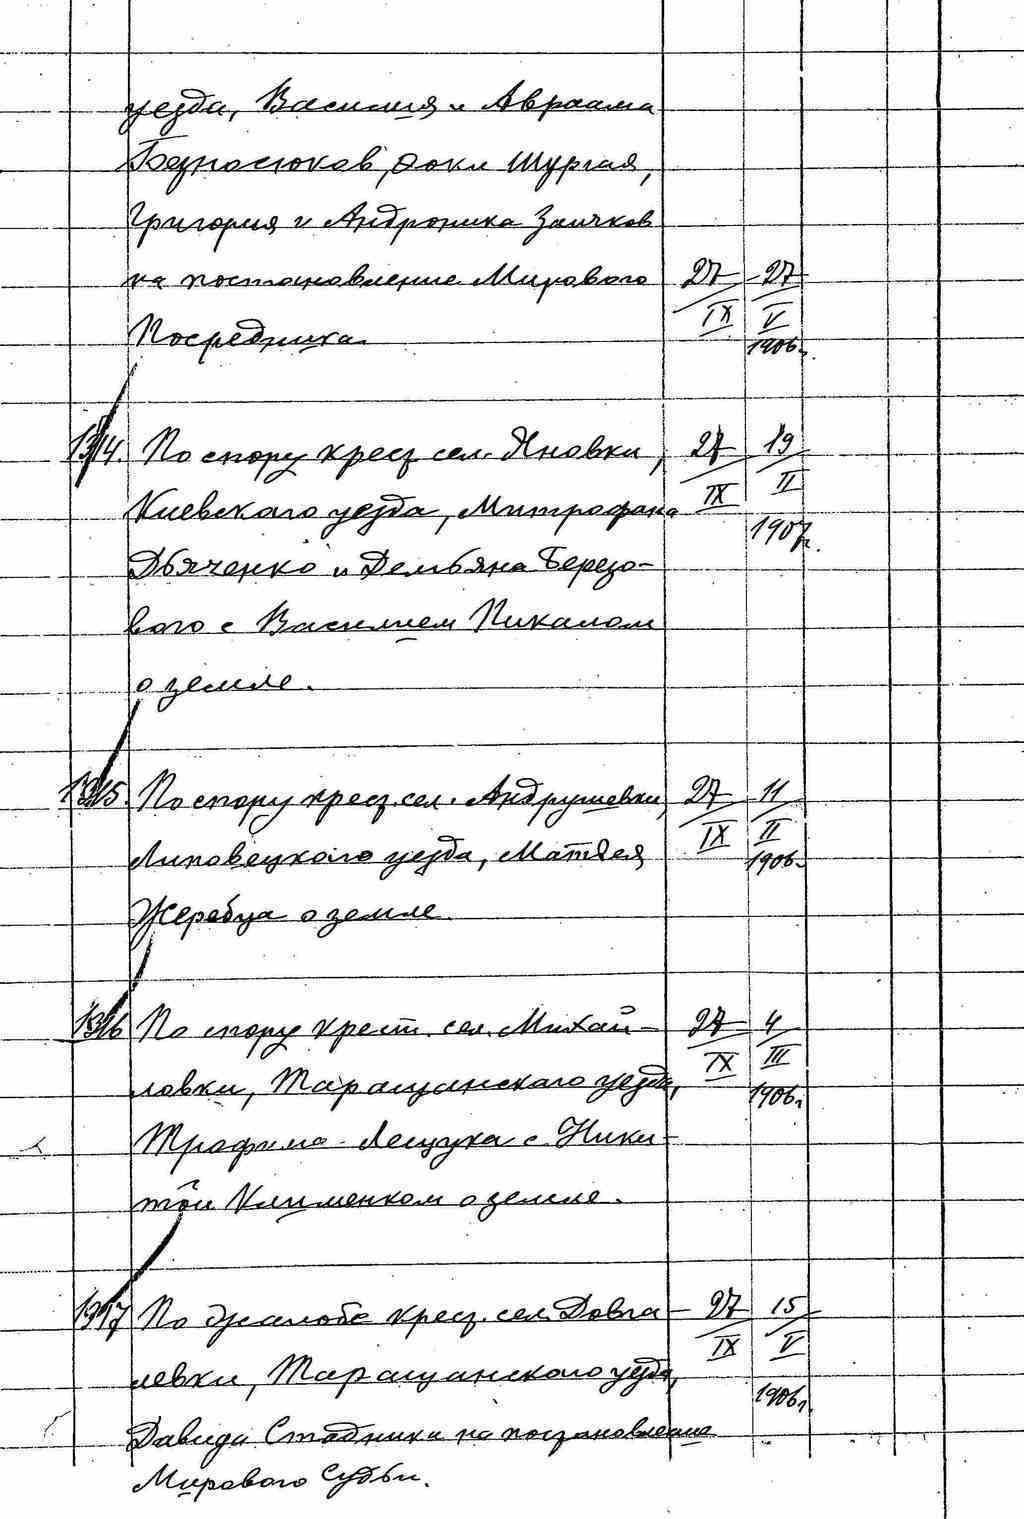 уезда, Василия и Авраама
Безносюков, Фокл Шургая,
Григория и Андроника Заичков
на постановление Мирового 27 27
Посредника. IX V
1906г.
1314. По спору крест. сел. Яновки, 27 19
IX II
Киевского уезда, Митрофана 1907г.
Дьяченко и Демьяна Березо-
вого с Василием Пикалом
о земле.
1315. По спору крест. сел. Андрушевки, 27 11
IX II
Липовецкого уезда, Матвея 1906г.
Жеребца о земле.
1316 По спору крест. сел. Михай- 27 4
IX III
ловки, Таращанского уезда, 1906г.
Трофима Лещука с Ники-
той Клименком о земле.
1317 По жалобе крест. сел. Довга- 27 15
IX V
левки, Таращанского уезда, 1906г.
Давида Стадника на постановление
Мирового Судьи.